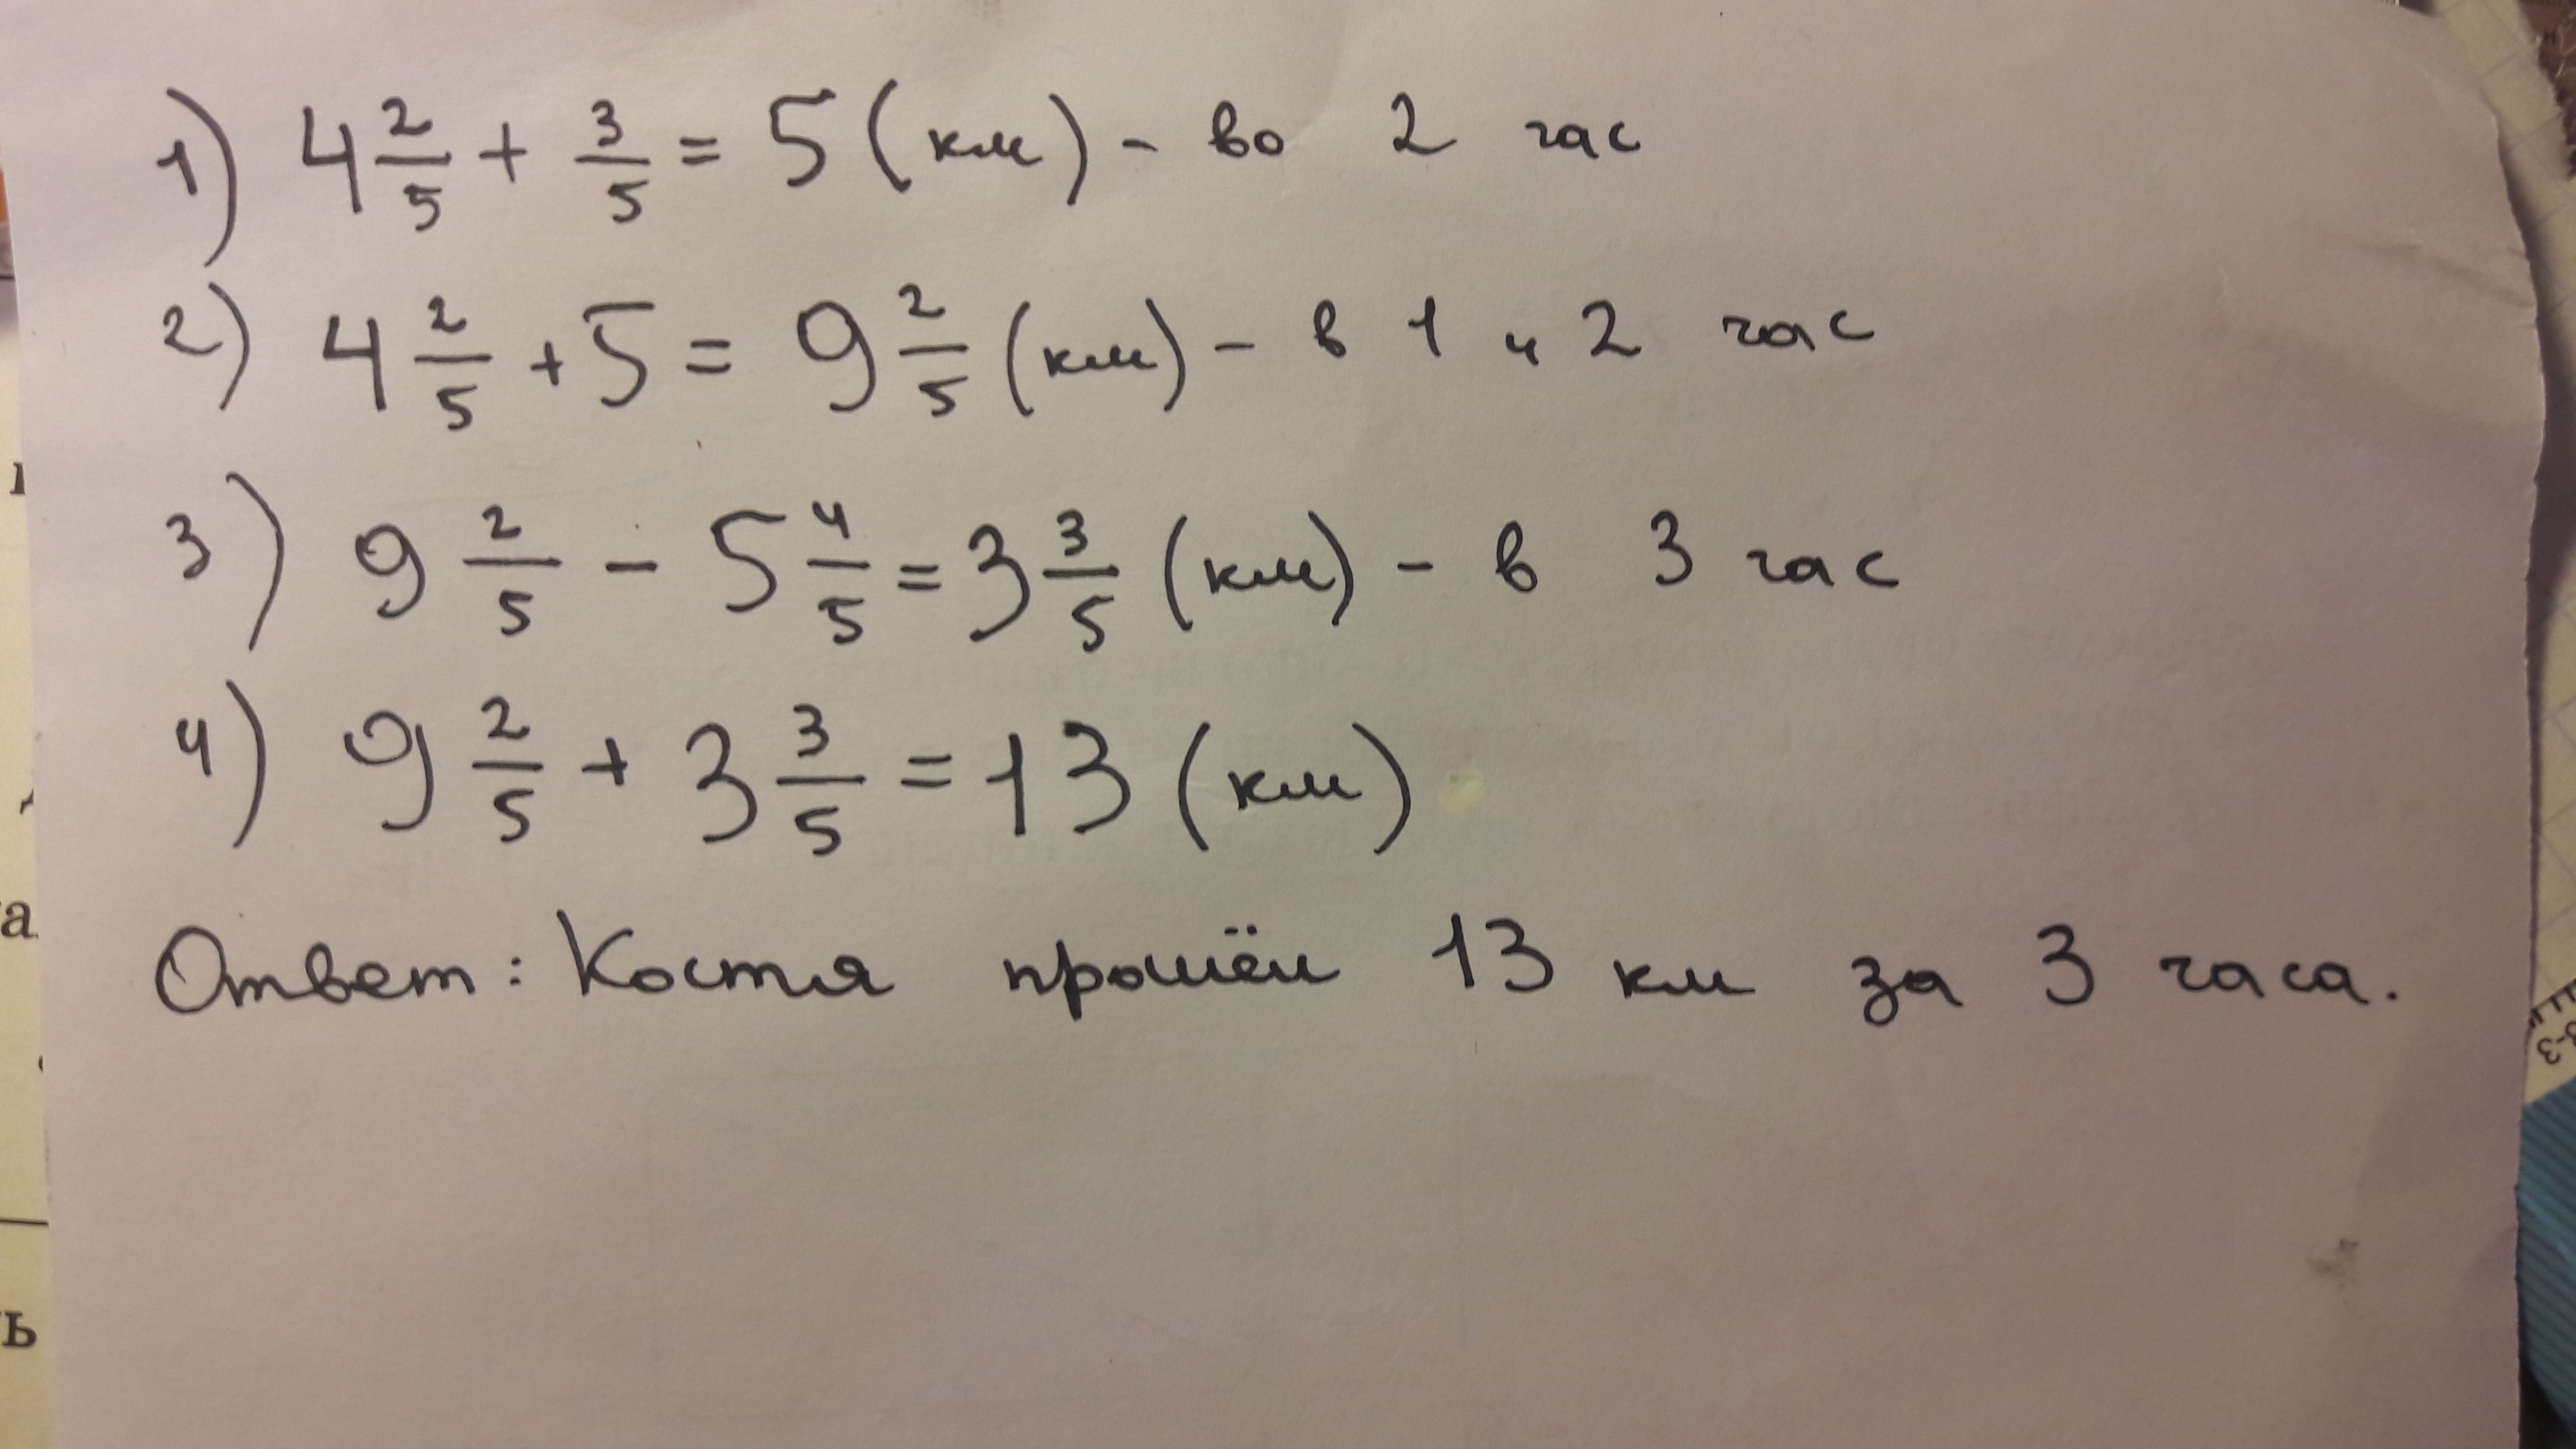 1) 4 2/5 + 3/5 = 5 (км) - во 2 час
2) 4 2/5 + 5 = 9 2/5 (км) - в 1 и 2 час
3) 9 2/5 - 5 4/5 = 3 3/5 (км) - в 3 час
4) 9 2/5 + 3 3/5 = 13 (км)
Ответ: Костя прошёл 13 км за 3 часа.